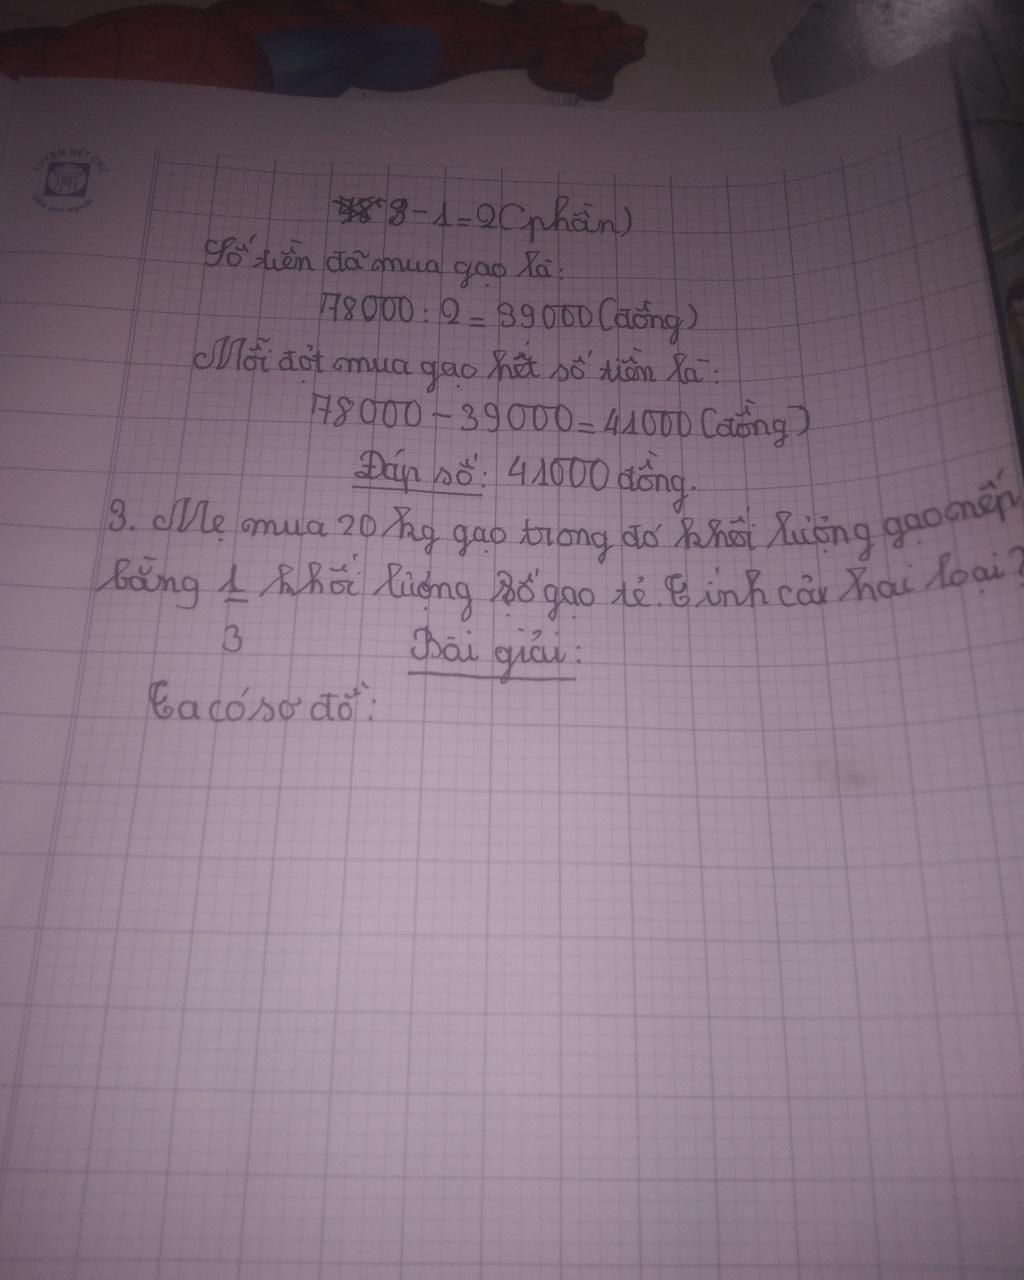 3-1=2(phần)
Số tiền đã mua gạo là:
78000:2=39000(đồng)
Mỗi đợt mua gạo hết số tiền là:
78000-39000=41000(đồng)
Đáp số: 41000 đồng.
3. Mẹ mua 20 kg gạo trong đó khối lượng gạo nếp
bằng 1/3 khối lượng số gạo tẻ. Tính cân hai loại?
Bài giải:
Ta có sơ đồ:
LUYỆN NÉT CHỮ